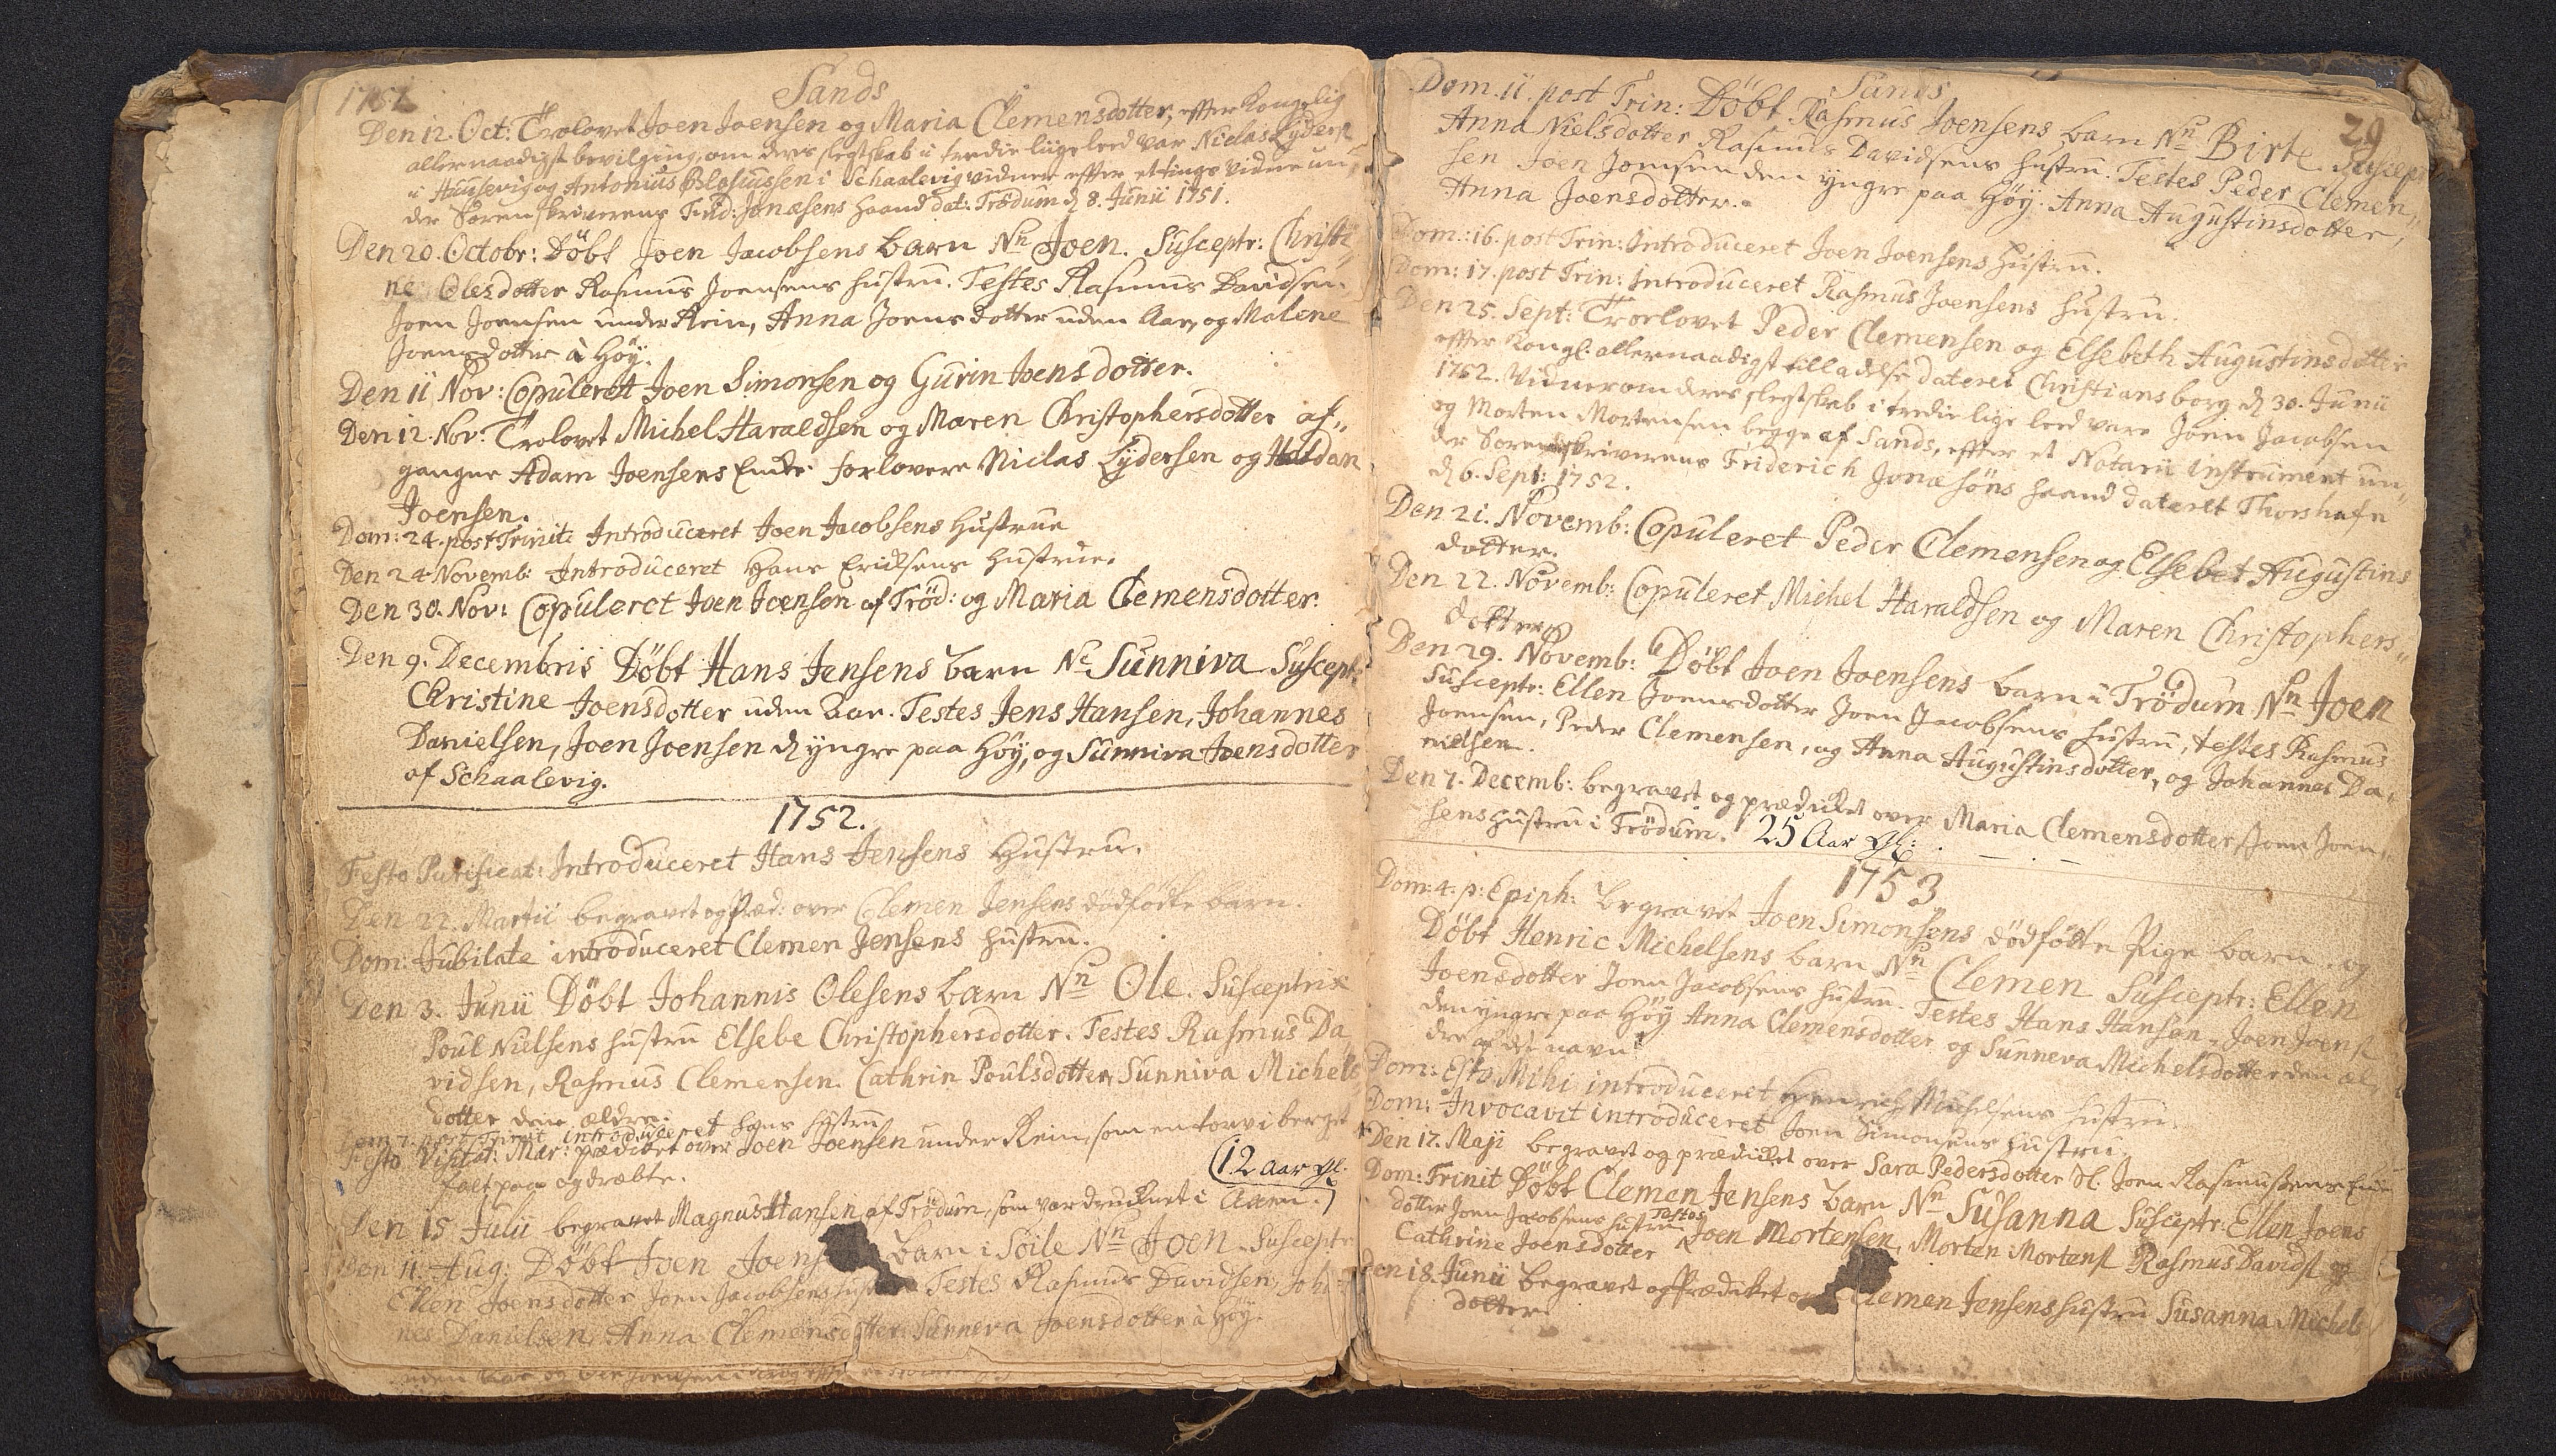 1751
Sands
Den 12. Oct: Trolovet Joen Joensen og Maria Clemensdotter, effter Kongelig
allernaadigst bevilging, om deres slegtskab i tredie liige leed var Niclas Lyders
i Huusevig og Antonius i Schaalevig vidner effter et tings vidne un„
der Sorenskriverens Frid: Jonæsens haand dat: Trödum d 8. Junii 1751.
Den 20. Octobr: Döbt Joen Jacobsens barn Nn Joen. Susceptr: Christi„
ne Olesdotter Rasmus Joensens hustru. Testes Rasmus Davidsen,
Joen Joensen under Rein, Anna Joensdotter uden Aar, og Malene
Joensdotter à Höÿ.
Den 11 Nov: Copuleret Joen Simonsen og Gurin Joensdotter.
Den 12. Nov: Trolovet Michel Haraldsen og Maren Christophersdotter af„
gangne Adam Joensens Encke forlovere Niclas Lÿdersen og Haldan
Joensen.
Dom: 24. post Trinit: Introduceret Joen Jacobsens Hustrue
Den 24 Novemb: Introduceret Hans Ericksens Hustrue.
Den 30. Nov: Copuleret Joen Joensen af Tröd: og Maria Clemensdotter.
Den 9. Decembris Döbt Hans Jensens barn Ne Sunniva Suscept:
Christine Joensdotter uden Aar. Testes Jens Hansen, Johannes
Danielsen, Joen Joensen d yngre paa Höÿ, og Sunniva Joensdotter
af Schaalevig.
1752.
Festo Purificat: Introduceret Hans Jensens Hustru.
Den 22. Martii begravet og Præd: over Clemen Jensens dödfödte barn.
Dom: Jubilate introduceret Clemen Jensens hustru.
Den 3. Junii Döbt Johannis Olesens barn Nn Ole. Susceptrix
Poul Nielsens hustru Elsebe Christophersdotter. Testes Rasmus Da„
vidsen, Rasmus Clemensen. Cathrin Poulsdotter, Sunniva Michels
dotter den ældre.
Dom 7. post Trinit introduceret hans hustru
Festo Visitat: Mar: prædicket over Joen Joensen under Rein, som en torvi berget
falt paa og dræbte. (12 Aar Gl.
Den 15 Julii begravet Magnus Hansen af Trödum, som var drucknet i Aaen.)
Den 11. Aug: Döbt Joen Joens barn i Söile Nn Joen. Susceptr
Ellen Joensdotter Joen Jacobsens hustru Testes Rasmus Davidsen, Joh
nes Danielsen, Anna Clemensdotter Sunneva Joensdotter à Höÿ.
Sands
29
Dom. 11. post Trin: Döbt Rasmus Joensens barn Nn Birte. Suscept
Anna Nielsdotter Rasmus Davidsens hustru. Testes Peder Clemen„
sen Joen Joensen den yngre paa Höÿ. Anna Augustinsdotter,
Anna Joensdotter.
Dom: 16. post Trin: Introduceret Joen Joensens Hustru.
Dom: 17. post Trin: Introduceret Rasmus Joensens hustru.
Den 25. Sept: Trorlovet Peder Clemensen og Elsebeth Augustinsdotter
effter Kongl: allernaadigst tilladelse dateret Christiansborg d 30. Junii
1752. Vidner om deres slegtskab i tredie lige leed vare Joen Jacobsen
og Morten Mortensen begge af Sands, effter et Notarii Instrument un„
der Sorenskriverens Friderich Jonæsöns haand dateret Thorshafn
d 6. Sept: 1752.
Den 21. Novemb: Copuleret Peder Clemensen og Elsebet Augustins
dotter.
Den 22. Novemb: Copuleret Michel Haraldsen og Maren Christophers„
dotter
Den 29. Novemb: Döbt Joen Joensens barn i Trödum Nn Joen
Susceptr: Ellen Joensdotter Joen Jacobsens hustru, testes Rasmus
Joensen, Peder Clemensen, og Anna Augustinsdotter, og Johannes Da„
nielsen.
Den 7. Decemb: begravet og prædicket over Maria Clemensdotter Joen Joen„
sens hustru i Trödum. 25 Aar Gl:
1753
Dom: 4. p: Epiph: begravet Joen Simonsens dödfödte Pige barn, og
Döbt Henric Michelsens barn Nn Clemen Susceptr: Ellen
Joensdotter Joen Jacobsens hustru. Testes Hans Hansen, Joen Joens
den yngre paa Höÿ Anna Clemensdotter og Sunneva Michelsdotter den æl„
dre af det navn
Dom: Esto Mihi introduceret Henrich Michelsens hustru.
Dom: Invocavit introduceret Joen Simonsens hustru.
Den 17. Maji begravet og prædicket over Sara Pedersdotter Sl. Joen Rasmussens Enke
Dom: Trinit Döbt Clemen Jensens barn Nn Susanna Susceptr: Ellen Joens
dotter Joen Jacobsens hustru Testes Joen Mortensen, Morten Mortens Rasmus Davids og
Cathrine Joensdotter
Den 18. Junii Begravet og Prædicket Clemen Jensens hustru Susanna Michels
dotter.